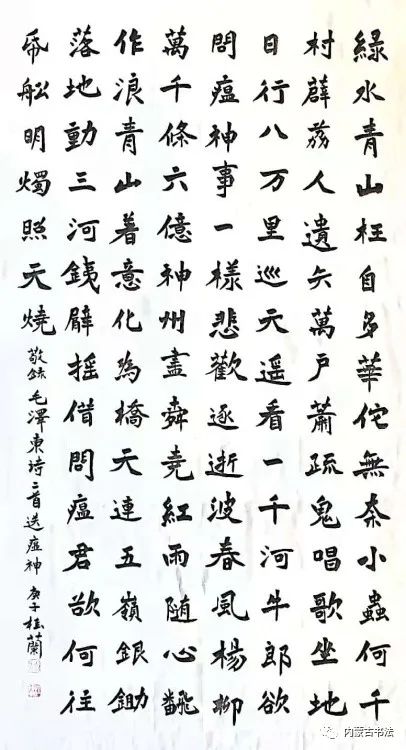 綠水青山枉自多華佗無奈小蟲何千
村薜荔人遺矢萬戶蕭疏鬼唱歌坐地
日行八万里巡天遥看一千河牛郎欲
問瘟神事一樣悲歡逐逝波春風楊柳
萬千條六億神州盡舜堯紅雨随心飜
作浪青山着意化為橋天連五嶺銀鋤
落地動三河銕臂摇借問瘟君欲何往
帋船明燭照天燒
敬録毛澤東詩二首送瘟神 庚子桂蘭
内蒙古书法